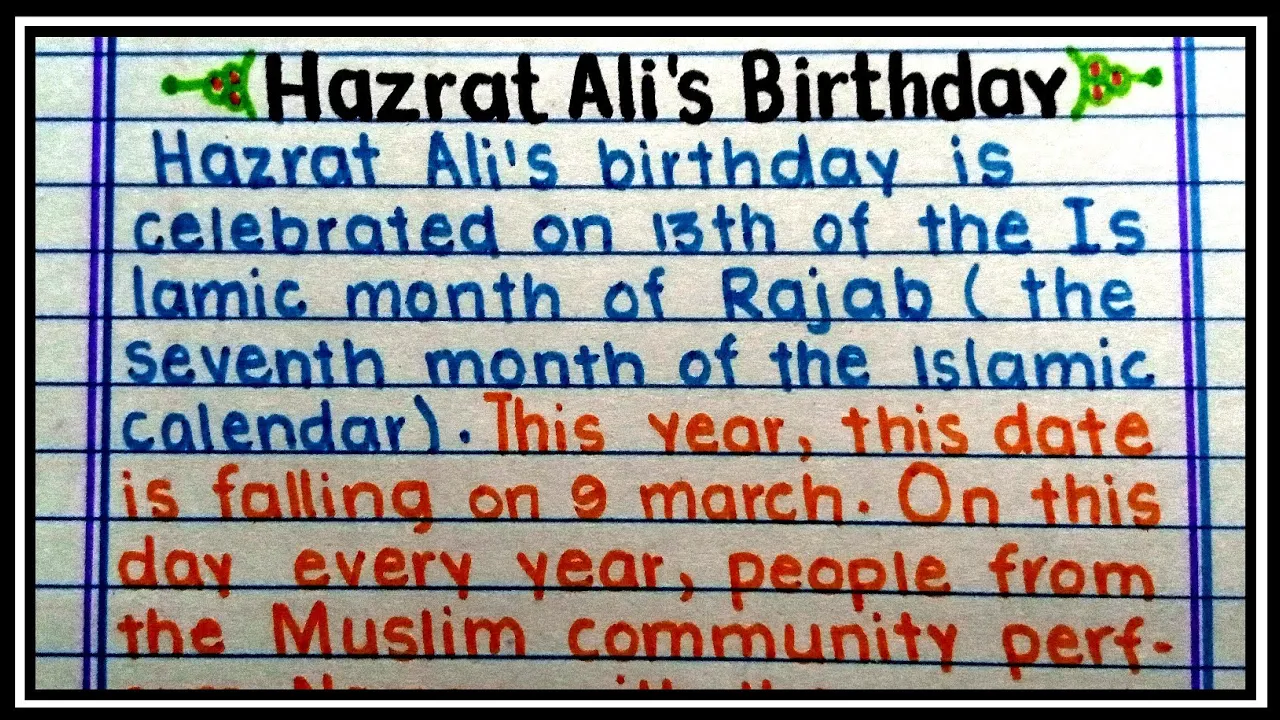 Hazrat Ali's Birthday
Hazrat Ali's birthday is
celebrated on 13th of the Is
lamic month of Rajab ( the
seventh month of the Islamic
calendar). This year, this date
is falling on 9 march. On this
day every year, people from
the Muslim community perf-